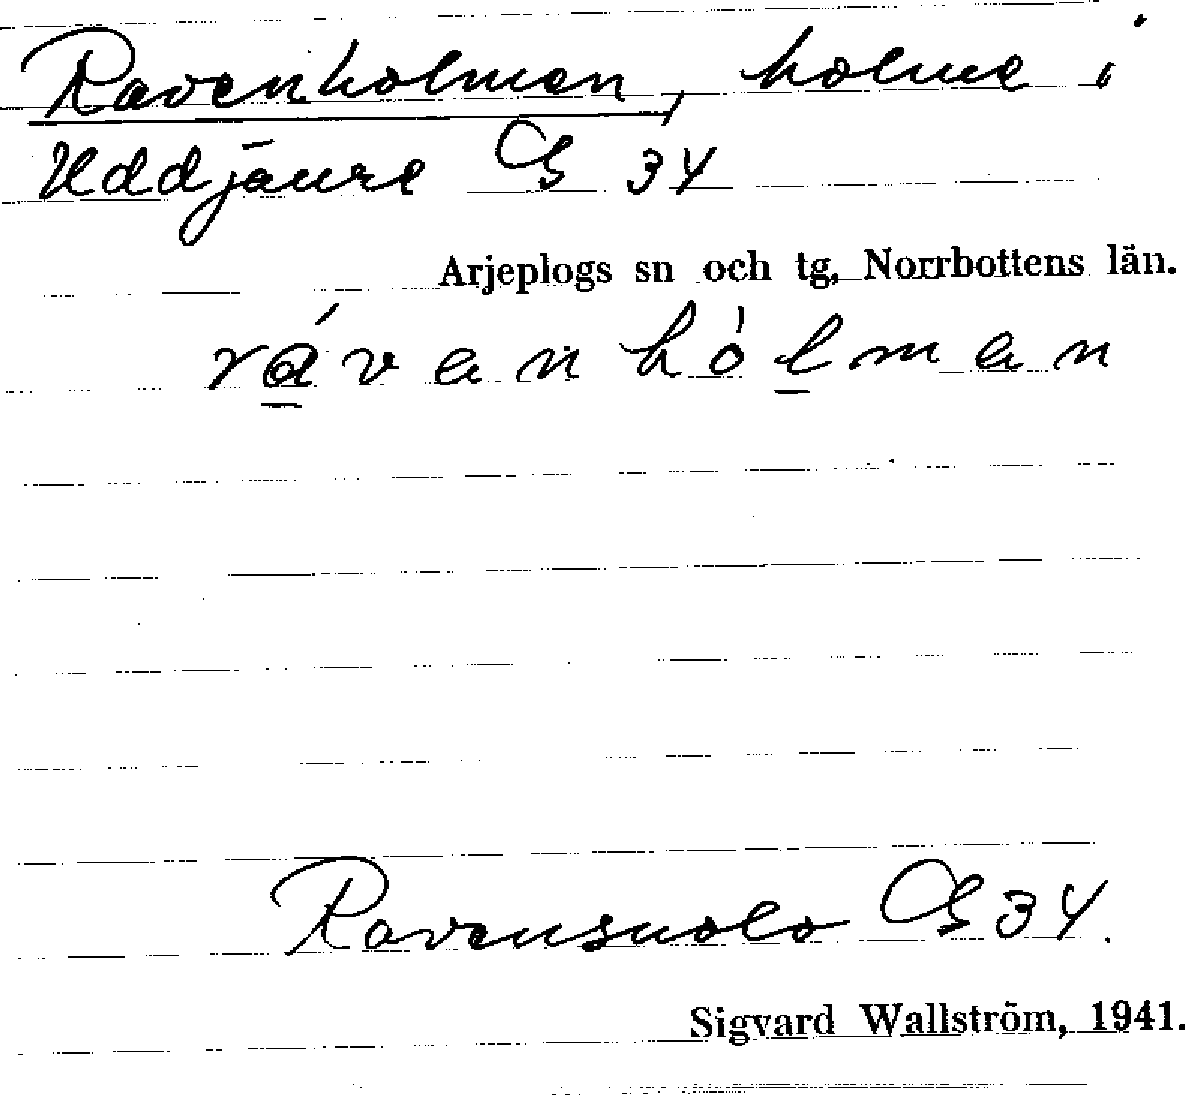 Ravenholmen, holme i
Uddjaure G 34
Arjeplogs sn och tg, Norrbottens län.
rávenhólmen
Ravensuolo G 34.
Sigvard Wallström, 1941.